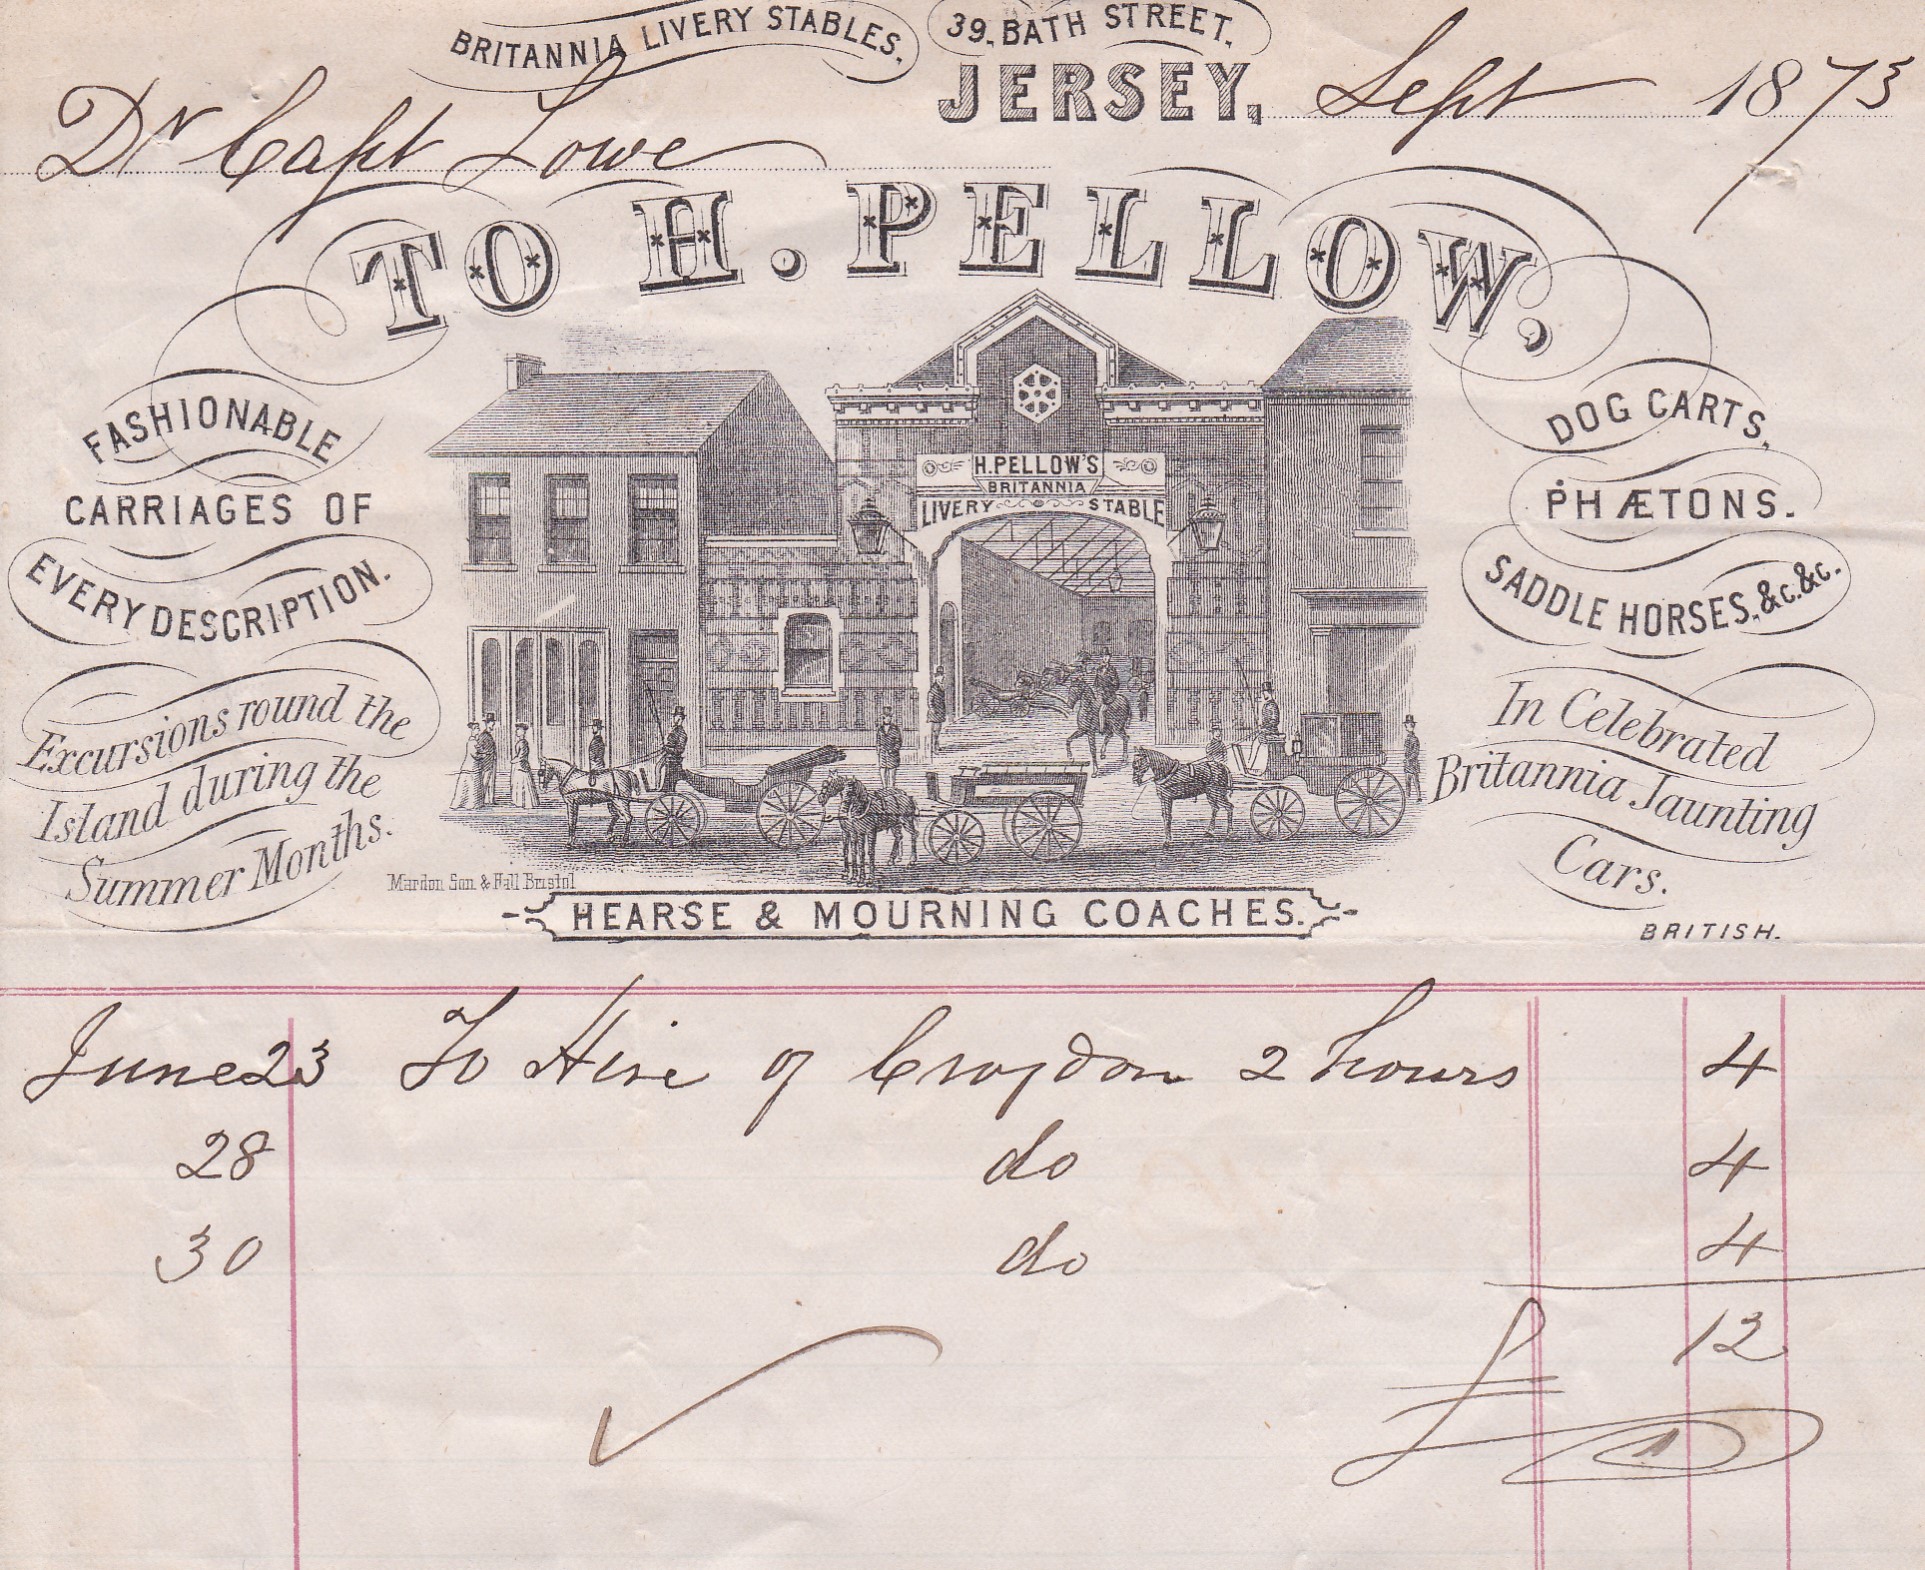 BRITANNIA LIVERY STABLES.
39, BATH STREET.
JERSEY, Sept 1873
Dr Capt Lowe
TO H. PELLOW,
FASHIONABLE
CARRIAGES OF
EVERY DESCRIPTION.
Excursions round the
Island during the
Summer Months.
H. PELLOW'S
BRITANNIA
LIVERY STABLE
DOG CARTS,
PHÆTONS.
SADDLE HORSES, &c. &c.
In Celebrated
Britannia Jaunting
Cars.
Mardon Son & Hall Bristol
HEARSE & MOURNING COACHES.
BRITISH.
June 23 To Hire of Croydon 2 hours 4
28 do 4
30 do 4
£ 12